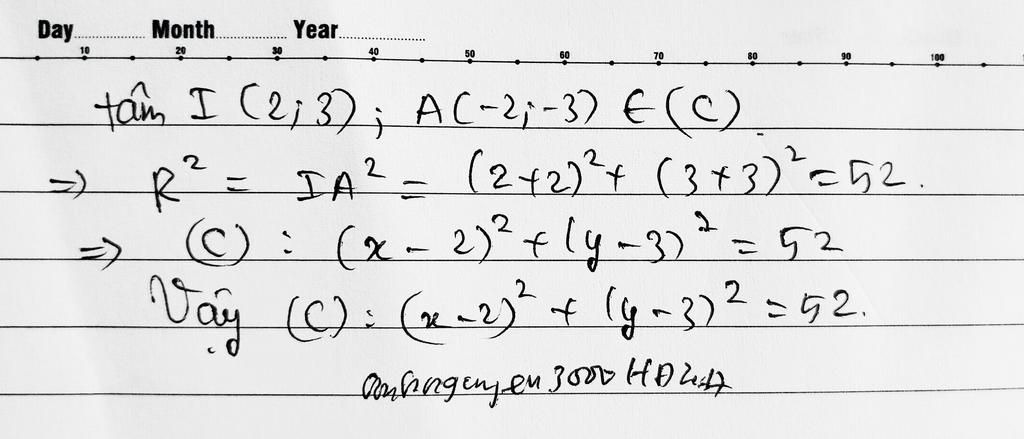 Day Month Year
10 20 30 40 50 60 70 80 90 100
tâm I (2;3); A(-2;-3) ∈ (C).
=> R² = IA² = (2+2)² + (3+3)² = 52.
=> (C) : (x - 2)² + (y - 3)² = 52
Vậy (C): (x - 2)² + (y - 3)² = 52.